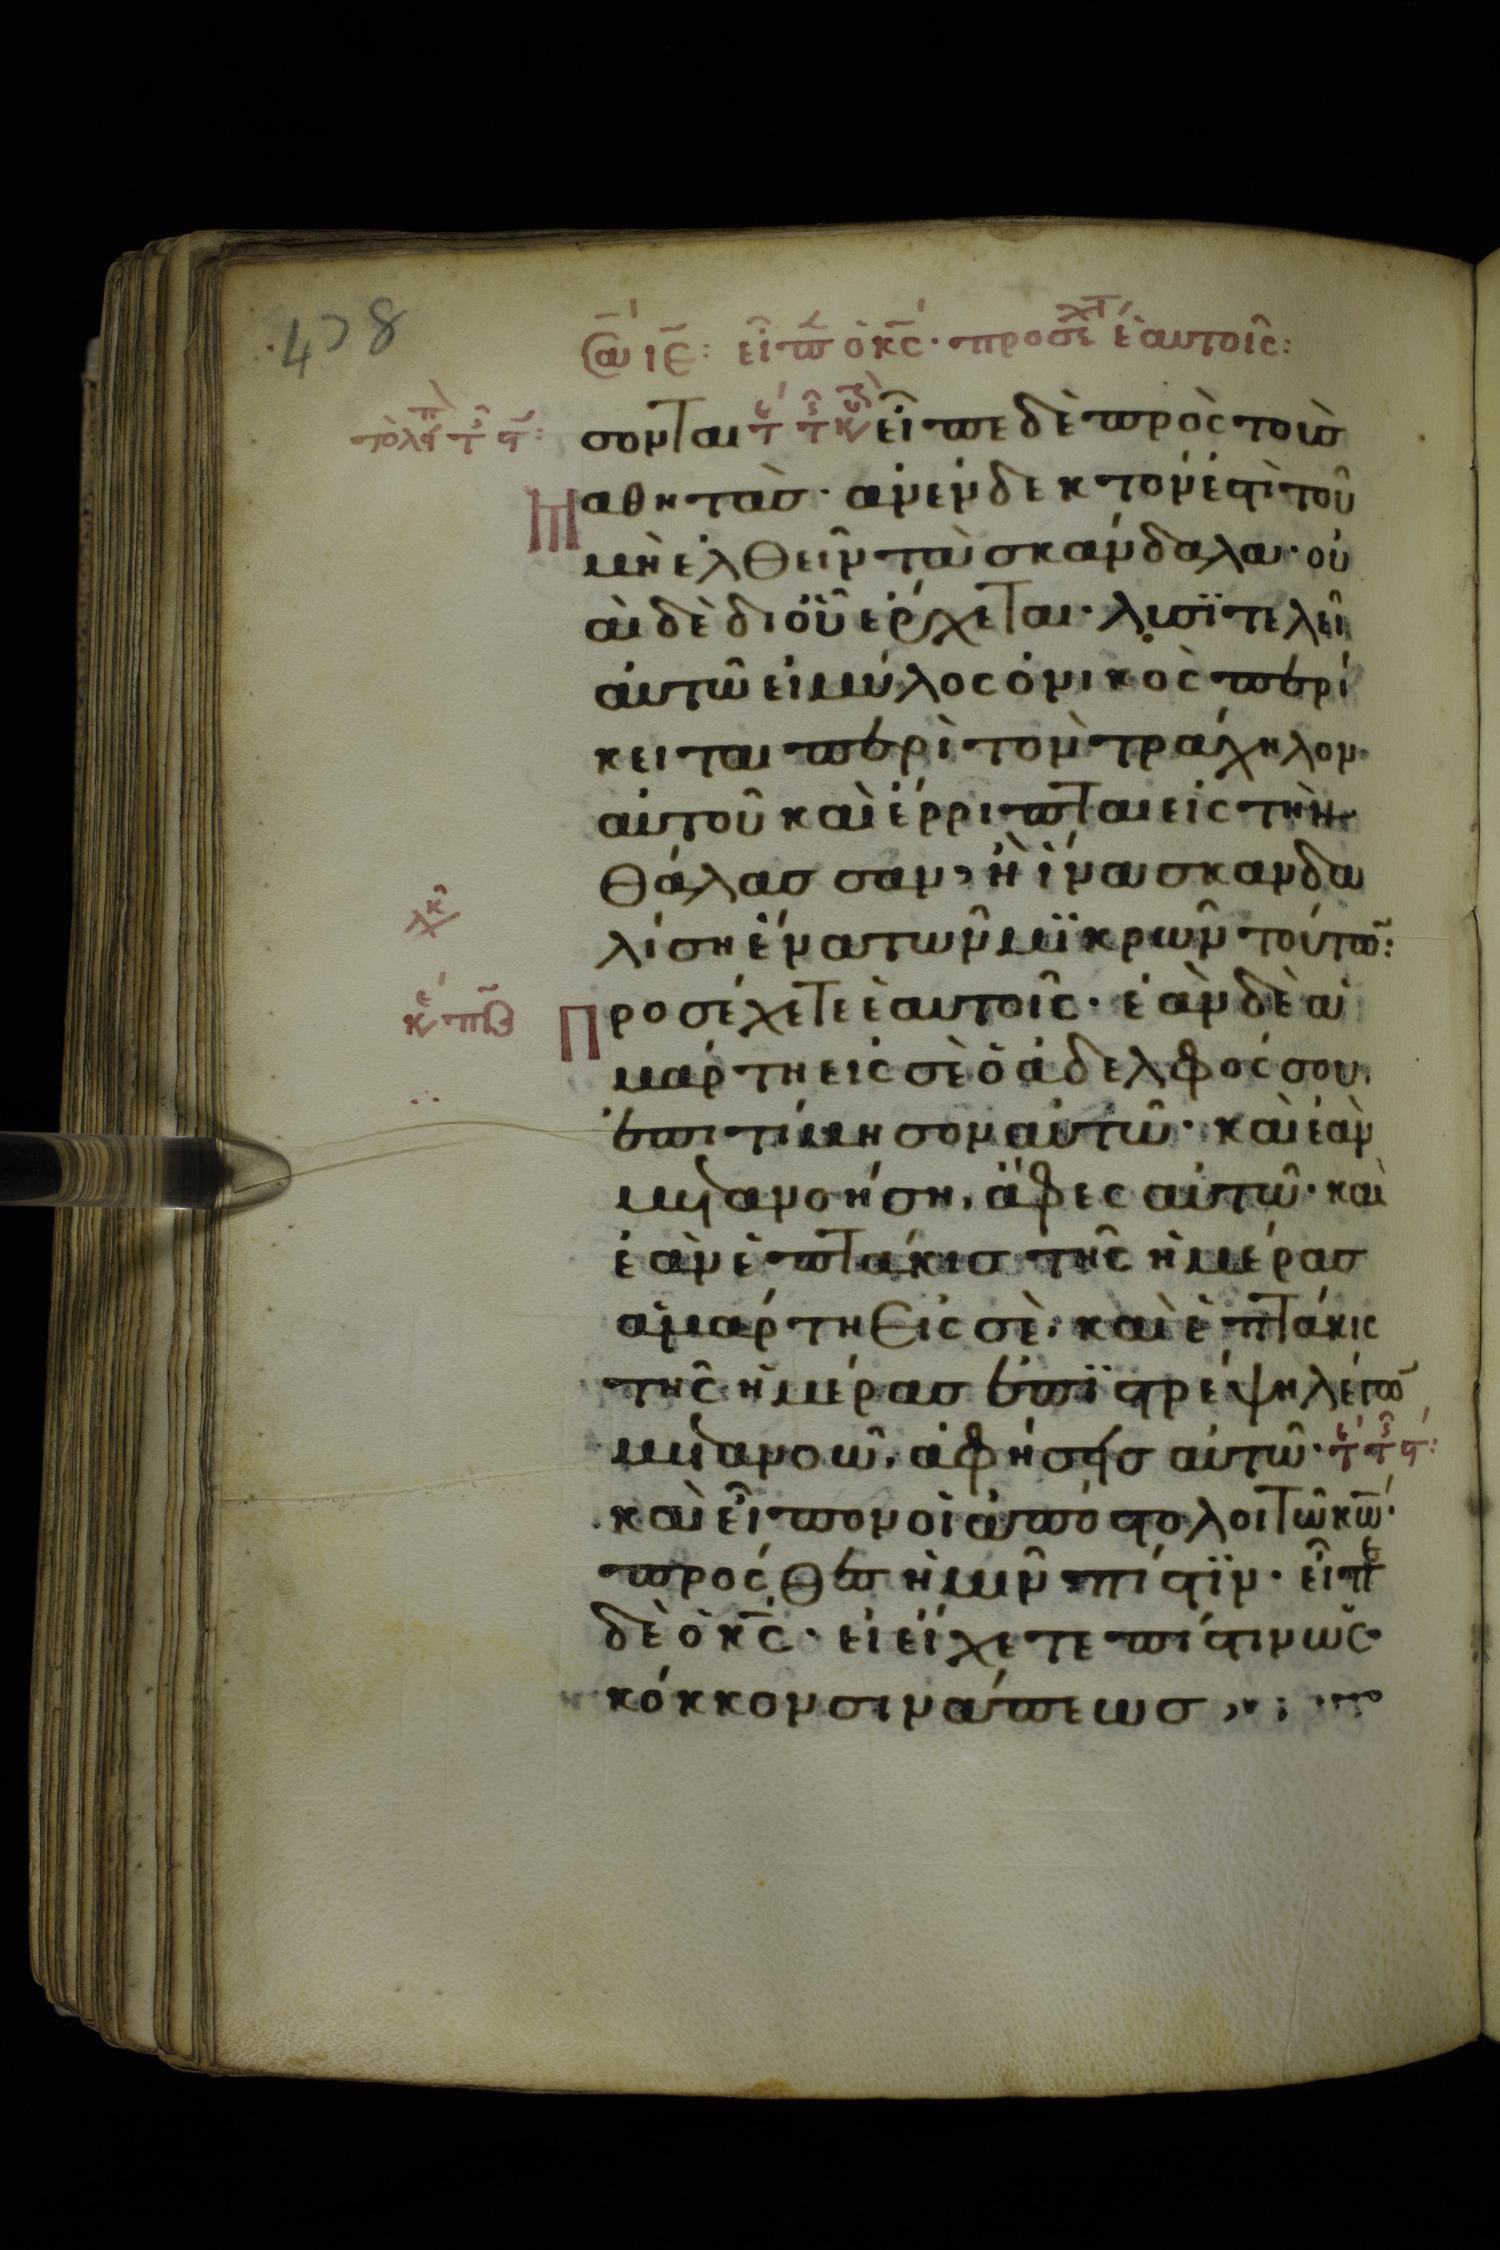 408
εἶπεν ὁ κ̅ς̅· προσέχετε ἑαυτοῖς:
σονται εἶπε δὲ πρὸς τοὺσ
Μαθητὰσ· ἀνένδεκτον ἐστὶ τοῦ
μὴ ἐλθεῖν τὰ σκάνδαλα· οὐ
αὶ δὲ δι οὗ ἔρχεται· λυσϊτελεῖ
αὐτῶ εἰ μύλος ὀνικὸς περί
κειται περὶ τὸν τράχηλον
αὐτοῦ καὶ ἔρριπται εἰς τὴν
θάλασσαν, ἢ ἵνα σκανδα
λίση ἕνα τῶν μϊκρῶν τούτων:
κε πβ
Προσέχετε ἑαυτοῖς· ἐὰν δὲ ἁ
μάρτη εἰς σὲ ὁ ἀδελφός σου,
ἐπιτίμησον αὐτῶ· καὶ ἐὰν
μετανοήση, ἄφες αὐτῶ· καὶ
ἐὰν ἑπτάκισ τῆς ἡμέρασ
ἁμάρτη εἰς σὲ, καὶ ἑπτάκις
τῆς ἡμέρασ ἐπϊστρέψη λέγων
μετανοῶ, ἀφήσεισ αὐτῶ·
καὶ εἶπον οἱ ἀπόστολοι τῶ κ̅ω̅·
πρόσθες ἡμῖν πίστϊν· εἶπε
δὲ ὁ κ̅ς̅· εἰ εἴχετε πίστιν ὡς
κόκκον σινάπεωσ